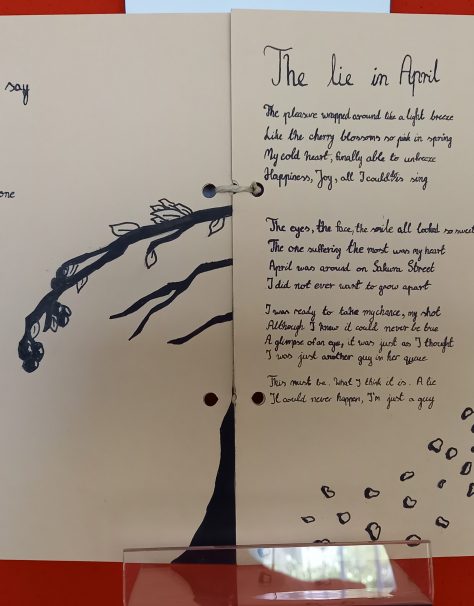 say
one
The lie in April
The pleasure wrapped around like a light breeze
Like the cherry blossoms so pink in spring
My cold heart, finally able to unfreeze
Happiness, Joy, all I could do is sing
The eyes, the face, the smile all looked so sweet
The one suffering the most was my heart
April was around on Sakura Street
I did not ever want to grow apart
I was ready to take my chance, my shot
Although I knew it could never be true
A glimpse of an eye, it was just as I thought
I was just another guy in her queue
This must be. What I think it is. A lie
It could never happen, I'm just a guy